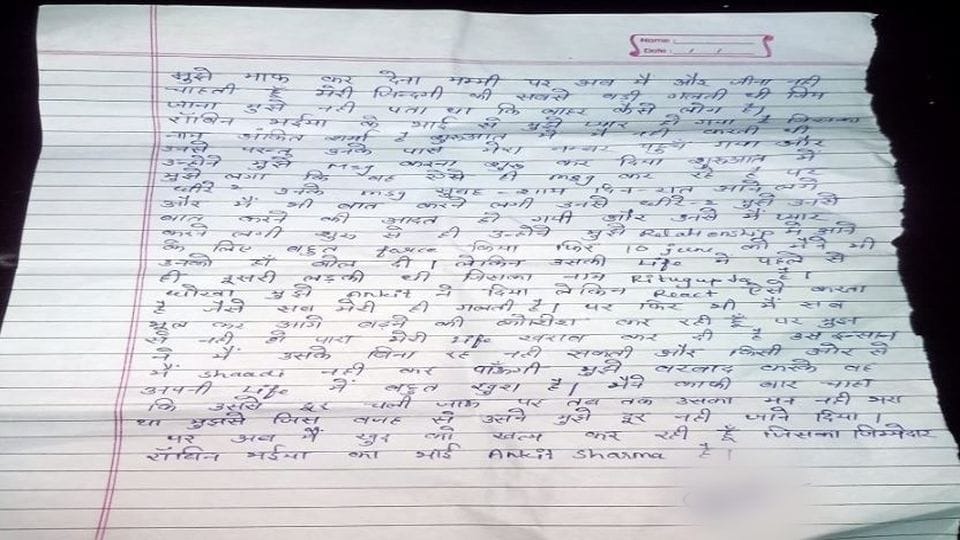 Name :
Date : / /
मुझे माफ कर देना मम्मी पर अब मैं और जीना नहीं
चाहती हूँ मेरी जिन्दगी की सबसे बड़ी गलती थी जिम
जाना मुझे नहीं पता था कि बाहर कैसे लोग है।
रॉबिन भईया के भाई से मुझे प्यार हो गया है जिसका
नाम अंकित शर्मा है शुरुआत में मैं नहीं करती थी
उनसे परन्तु उनके पास मेरा नम्बर पहुँच गया और
उन्होंने मुझे msg करना शुरू कर दिया शुरुआत में
मुझे लगा कि वह ऐसे ही msg कर रहे है पर
धीरे-2 उनके msg सुबह-शाम दिन-रात आने लगे
और मैं भी बात करने लगी उनसे धीरे-2 मुझे उनसे
बात करने की आदत हो गयी और उनसे मैं प्यार
करने लगी शुरू से ही उन्होंने मुझे Relationship में आने
के लिए बहुत force किया फिर 10 june को मैंने भी
उनको हाँ बोल दी। लेकिन उसकी Life में पहले से
ही दूसरी लड़की थी जिसका नाम Ritugupta है।
धोखा मुझे Ankit ने दिया लेकिन React ऐसे करता
है जैसे सब मेरी ही गलती है। पर फिर भी मैं सब
भूल कर आगे बढ़ने की कोशिश कर रही हूँ पर मुझ
से नहीं हो पारा मेरी Life खराब कर दी है उस इन्सान
ने मैं उसके बिना रह नहीं सकती और किसी और से
मैं shaadi नहीं कर पाऊँगी मुझे बरबाद करके वह
अपनी Life में बहुत खुश है। मैंने काफी बार चाहा
कि उससे दूर चली जाऊ पर तब तक उसका मन नहीं भरा
था मुझसे जिस वजह से उसने मुझे दूर नहीं जाने दिया।
पर अब मैं खुद को खत्म कर रही हूँ जिसका जिम्मेदार
रॉबिन भईया का भाई Ankit Sharma है।